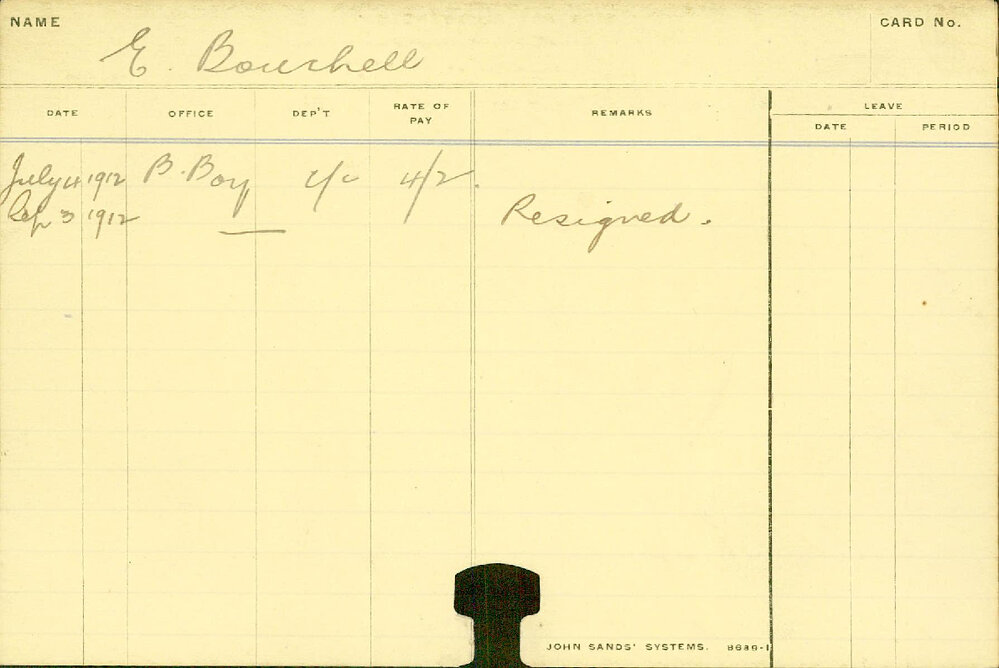 NAME
CARD No.
E. Bourchell
DATE OFFICE DEP'T RATE OF PAY REMARKS LEAVE
DATE PERIOD
July 4 1912 B. Boy c/c 4/2.
Sep 3 1912 — Resigned.
JOHN SANDS' SYSTEMS. 8686-1